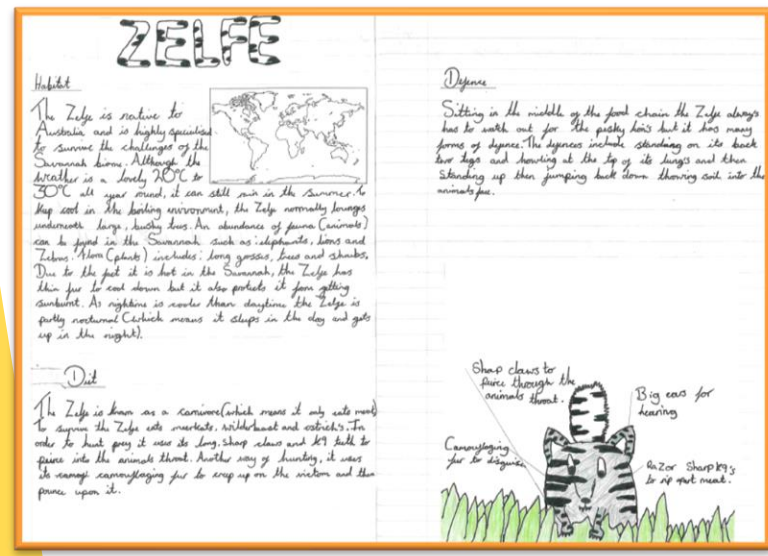 ZELFE
Habitat
The Zelfe is native to
Australia and is highly specialised
to survive the challenges of the
Savannah biome. Although the
weather is a lovely 20°C to
30°C all year round, it can still rain in the summer. To
keep cool in the boiling environment, the Zelfe normally lounges
underneath large, bushy trees. An abundance of fauna (animals)
can be found in the Savannah such as: elephants, lions and
Zebras. Flora (plants) includes: long grasses, trees and shrubs.
Due to the fact it is hot in the Savannah, the Zelfe has
thin fur to cool down but it also protects it from getting
sunburnt. As nightime is cooler than daytime the Zelfe is
partly nocturnal (which means it sleeps in the day and gets
up in the night).
Diet
The Zelfe is known as a carnivore (which means it only eats meat)
To survive the Zelfe eats meerkats, wildebeast and ostrich's. In
order to hunt prey it uses its long, sharp claws and K9 teeth to
peirce into the animals throat. Another way of hunting, it uses
its camouflaging fur to creep up on the victim and then
pounce upon it.
Defence
Sitting in the middle of the food chain the Zelfe always
has to watch out for the pesky lions but it has many
forms of defence. The defences include standing on its back
two legs and howling at the top of its lungs and then
standing up then jumping back down throwing soil into the
animals face.
Sharp claws to
peirce through the
animals throat.
Big ears for
hearing
Camouflaging
fur to disguise.
Razor Sharp K9's
to rip apart meat.